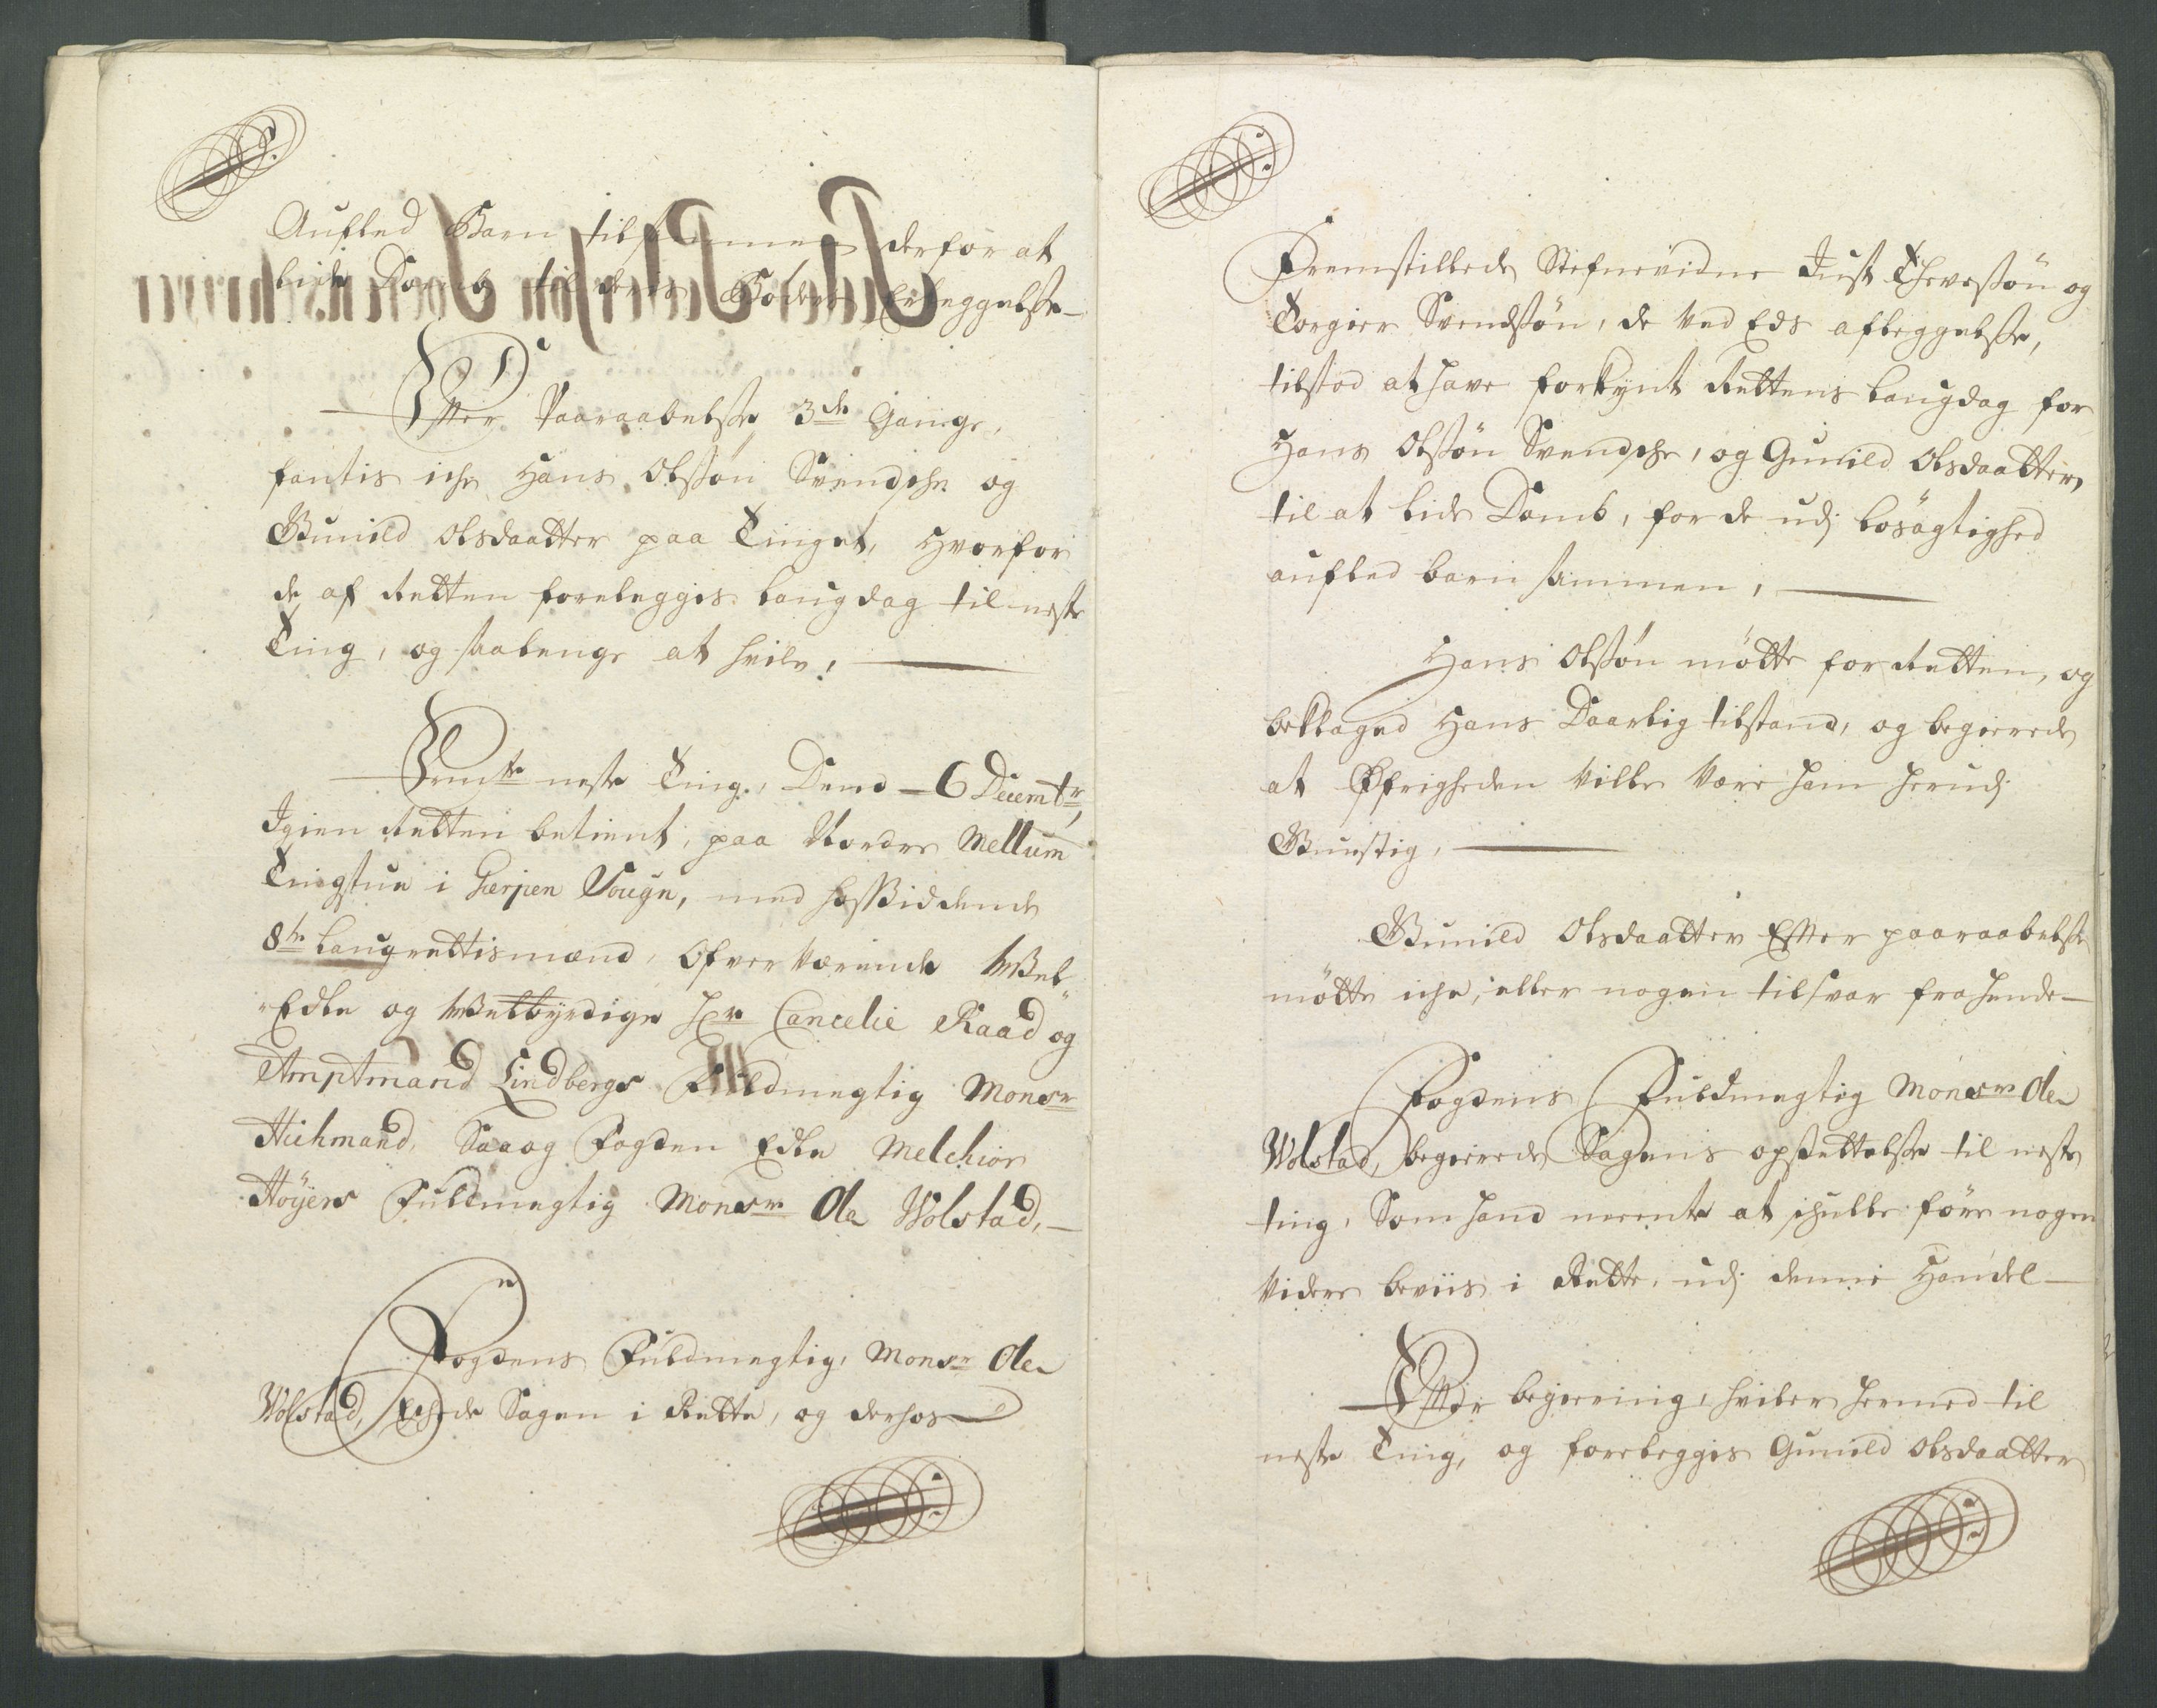 Aufled Barn tilsammen derfor at
lide Domb til deris Bøders Erleggelsse
Effter Paaraabelsse 3de Gange,
fantis iche Hans Olssøn Svendsche og
Gunild Olsdaatter paa Tinget, Hvorfor
de af Retten foreleggis laugdag til neste
Ting, og saalenge at hvile,
Neste Ting, Dend 6 Decembr,
Igien Retten betient, paa Nordre Mellum
Tingstue i Gierpen Sougn, med hossiddende
8te Laugrettismænd, Ofververende Wel-
Edle og Welbyrdige Hr Cancelie Raad og
Amptmand Lindbergs Fuldmegtig Monsr
Hichmand, Saa og Fogden Edle Melchior
Høyers Fuldmegtig Monsr Ole Wolstad,
Fogdens Fuldmegtig, Monsr Ole
Wolstad, Eschede Sagen i Rette, og derhos
Fremstillede Stefnevidne Just Thovessøn og
Torgier Svendssøn, de ved Eds afleggelsse,
tilstod at have forkynt Rettens laugdag for
Hans Olssøn Svendsche, og Gunild Olsdaatter,
til at lide Domb, for de udj løsagtighed
aufled barn sammen,
Hans Olssøn møtte for Retten, og
beklaged Hans Daarlig tilstand, og begierede
at Øfrigheden Ville Være ham herudj
Gunstig,
Gunild Olsdaatter Effter paaraabelsse
møtte iche, eller nogen tilsvar fra hende
Fogdens Fuldmegtig Monsr Ole
Wolstad, begierede Sagens opsettelsse til neste
ting, Som hand meente at schulle føre nogen
Videre beviis i Rette, udj denne Handel
Effter begiering, hviler hermed til
neste Ting, og foreleggis Gunild Olsdaatter